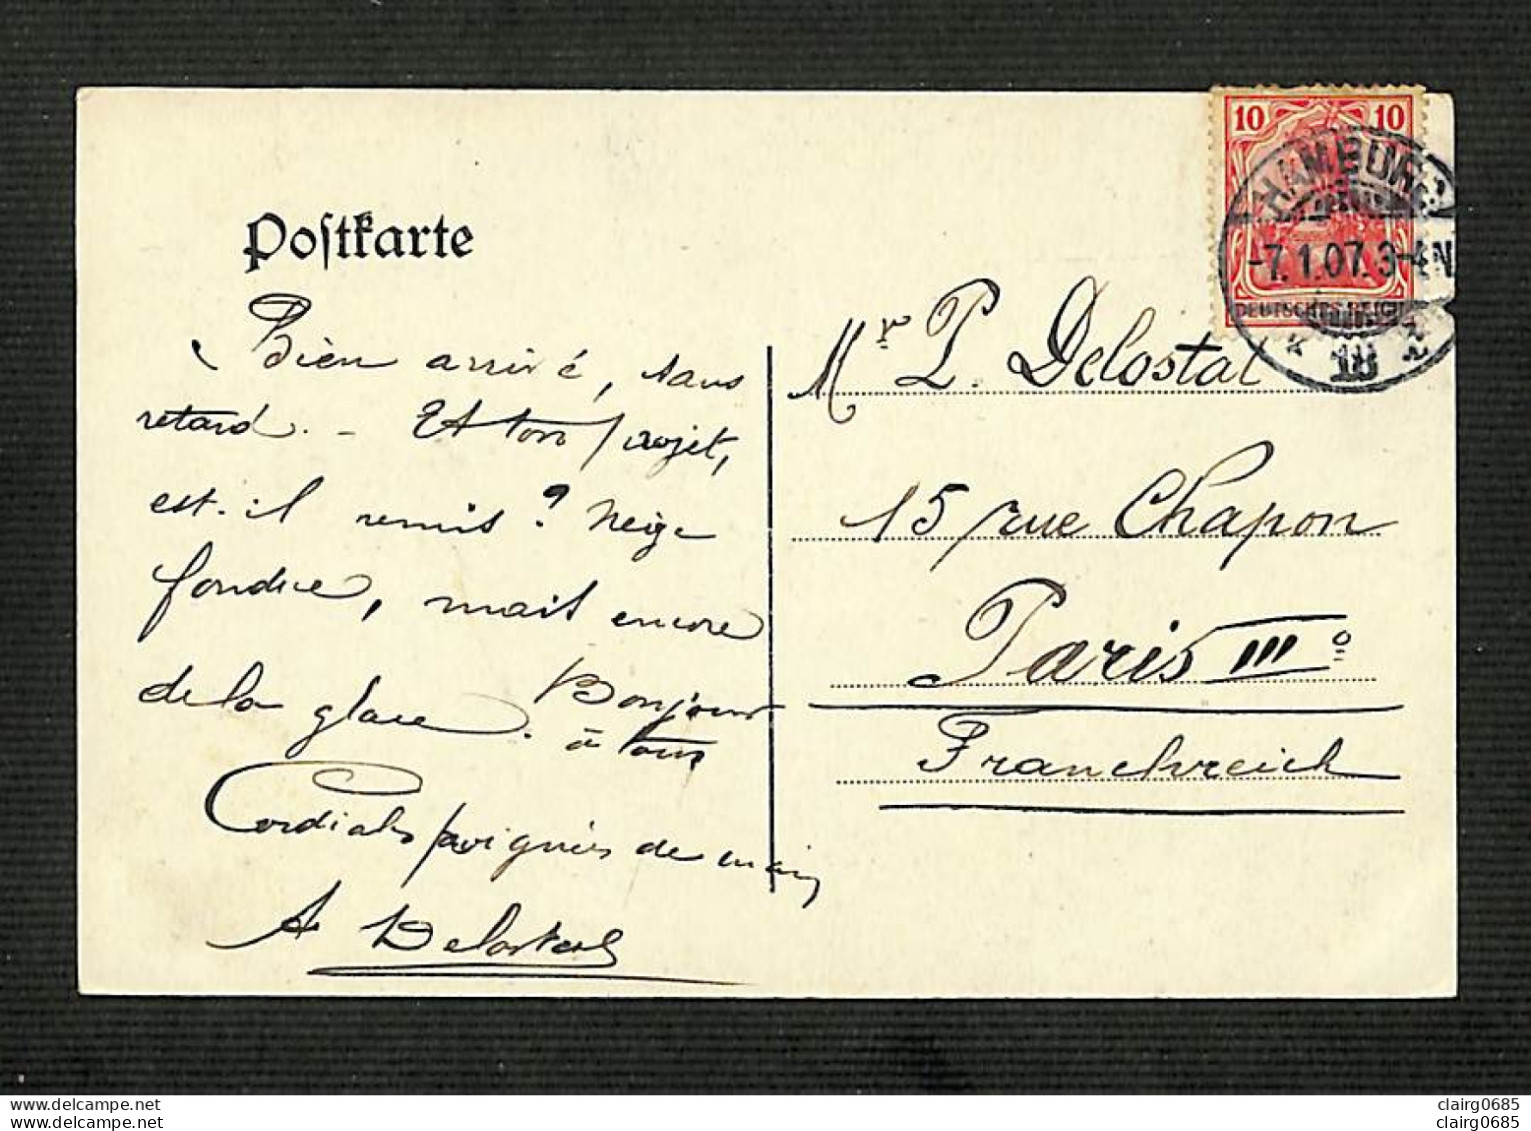 Postkarte
Bien arrivé, sans
retard. - Et ton projet,
est-il remis ? Neige
fondue, mais encore
de la glace. Bonjour
à tous
Cordiales poignées de main
A Delostal
10 10
HAMBURG
-7.1.07. 3-4N
DEUTSCHES REICH
* 18 *
Mr P. Delostal
15 rue Chapon
Paris IIIe
Franchreich
www.delcampe.net
www.delcampe.net
clairg0685
clairg0685